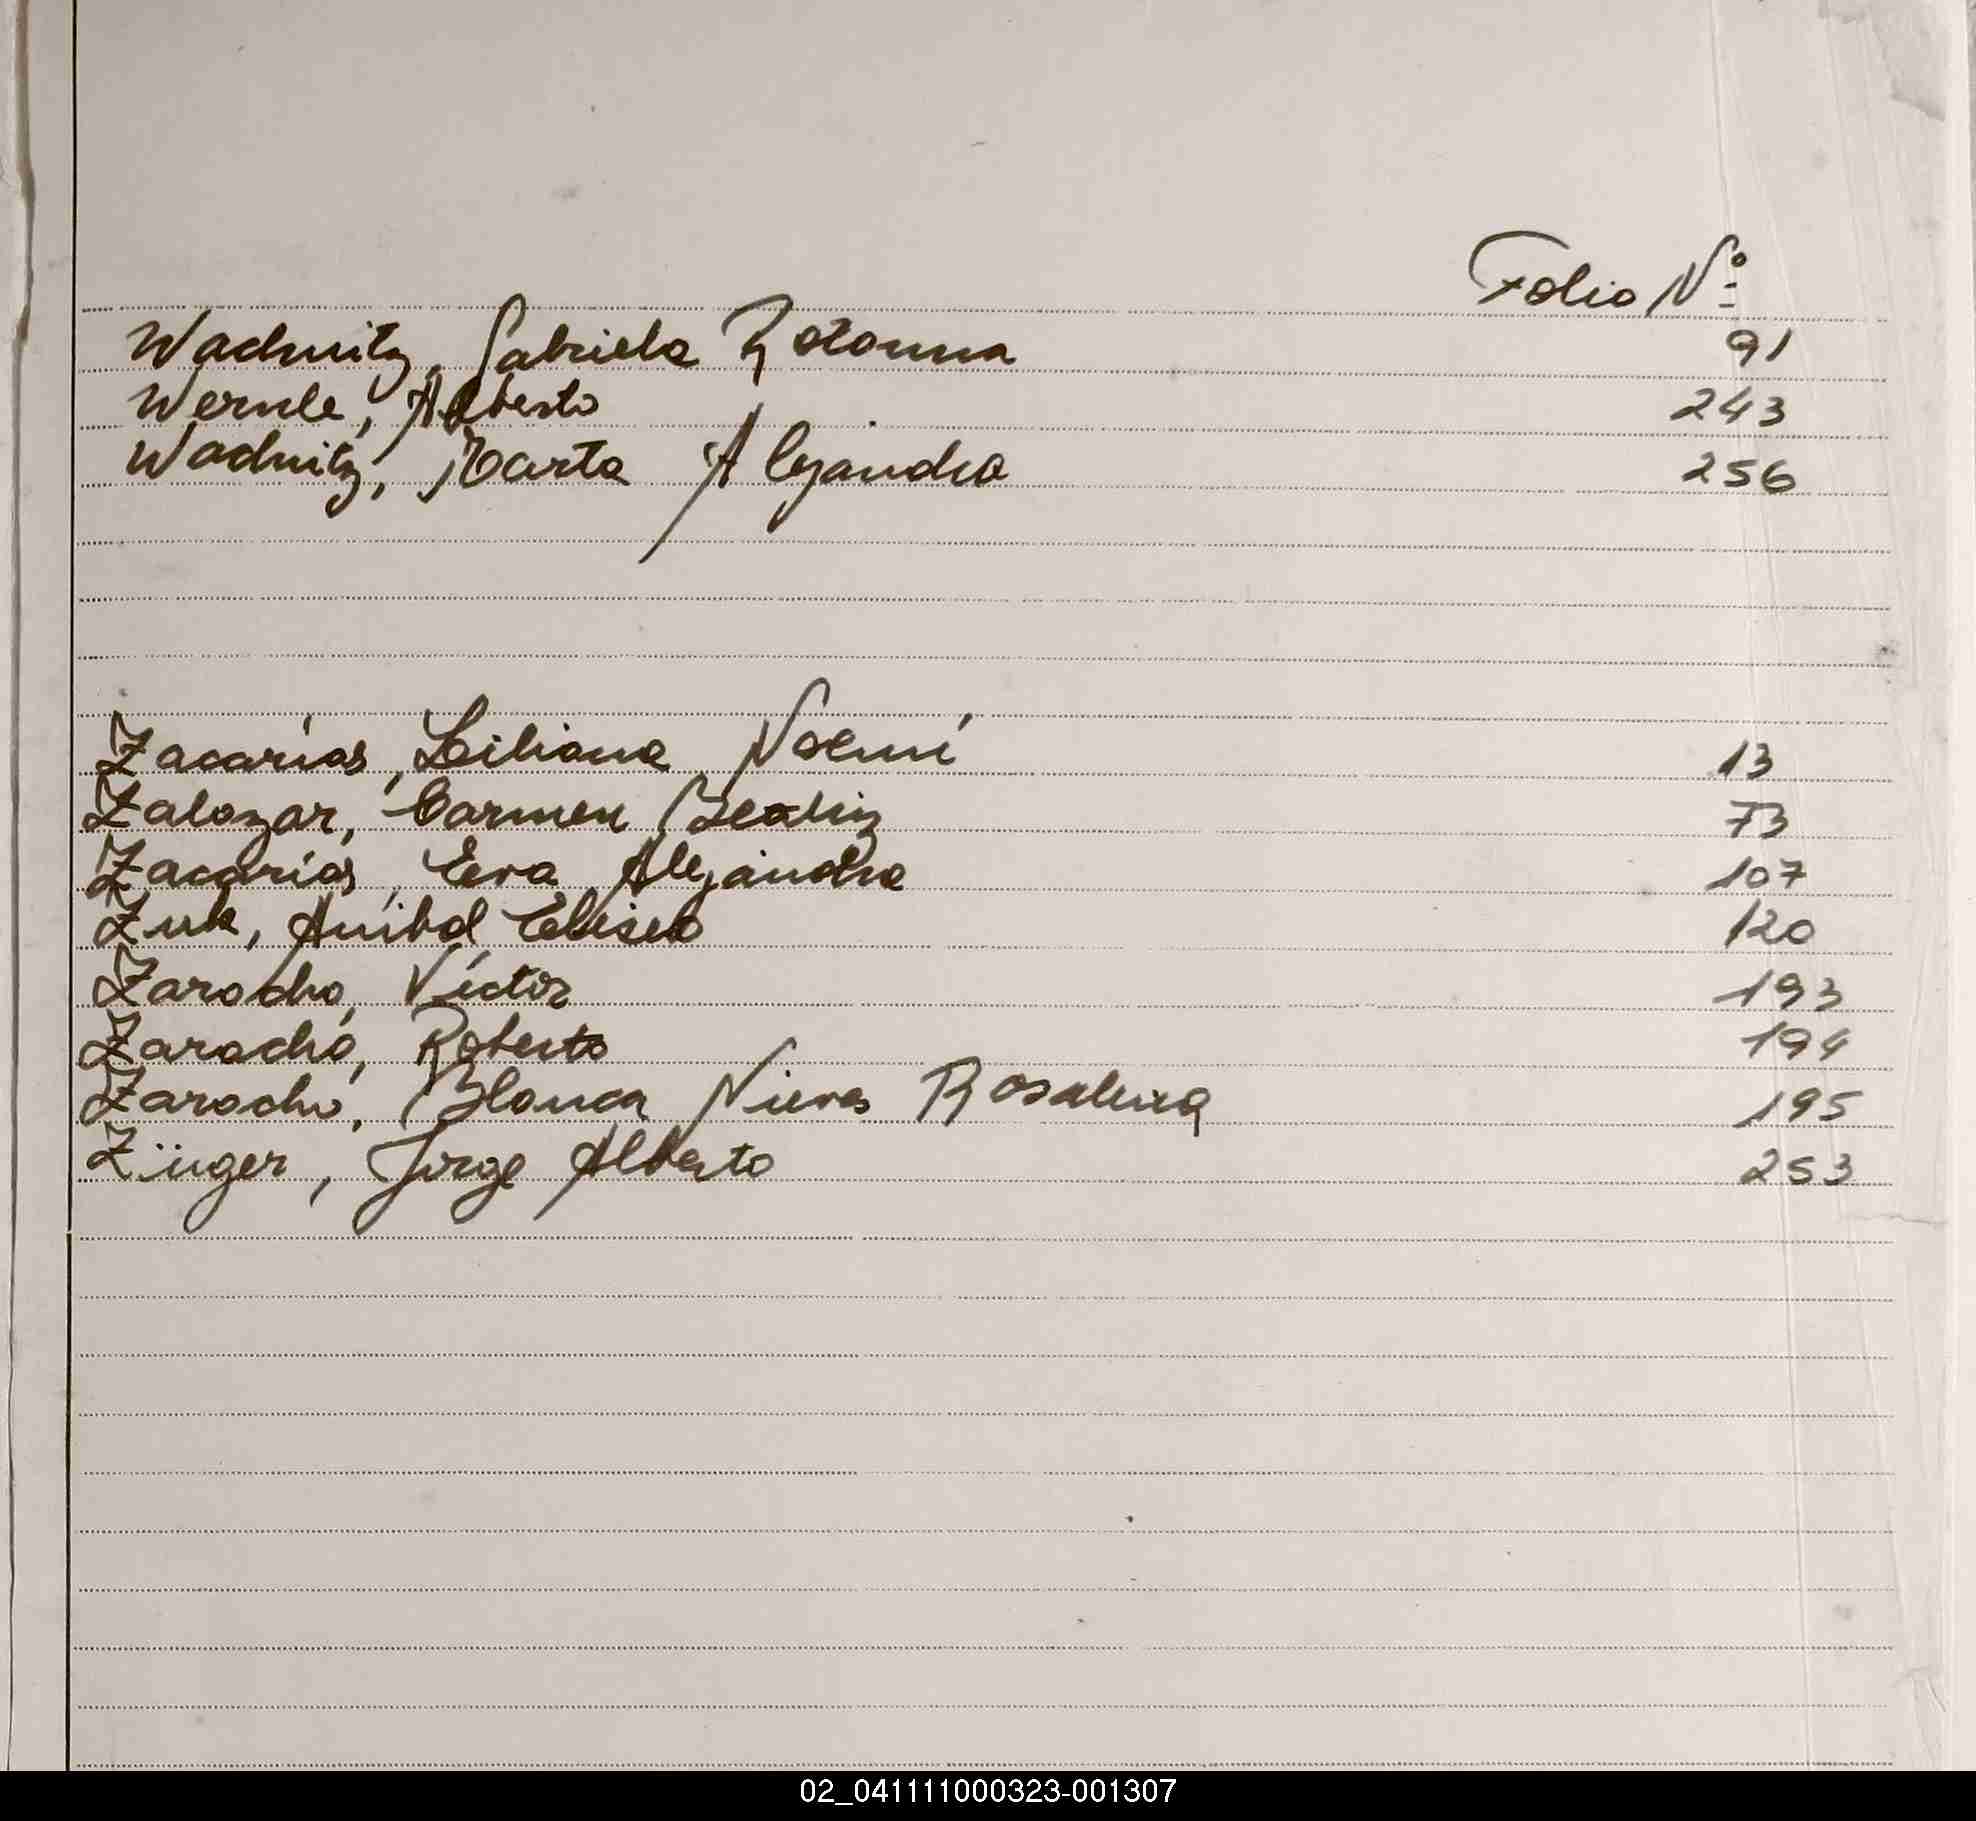 Folio Nº
Wadnitz, Gabriela Rosanna 91
Wernle, Alberto 243
Wadnitz, Marta Alejandra 256
Zacarías, Liliana Noemí 13
Zalazar, Carmen Beatriz 73
Zacarías, Eva Alejandra 107
Zuk, Anibal Eliseo 120
Zaracho, Víctor 193
Zaracho, Roberto 194
Zaracho, Blanca Nieves 195
Zünger, Jorge Alberto 253
02_041111000323-001307